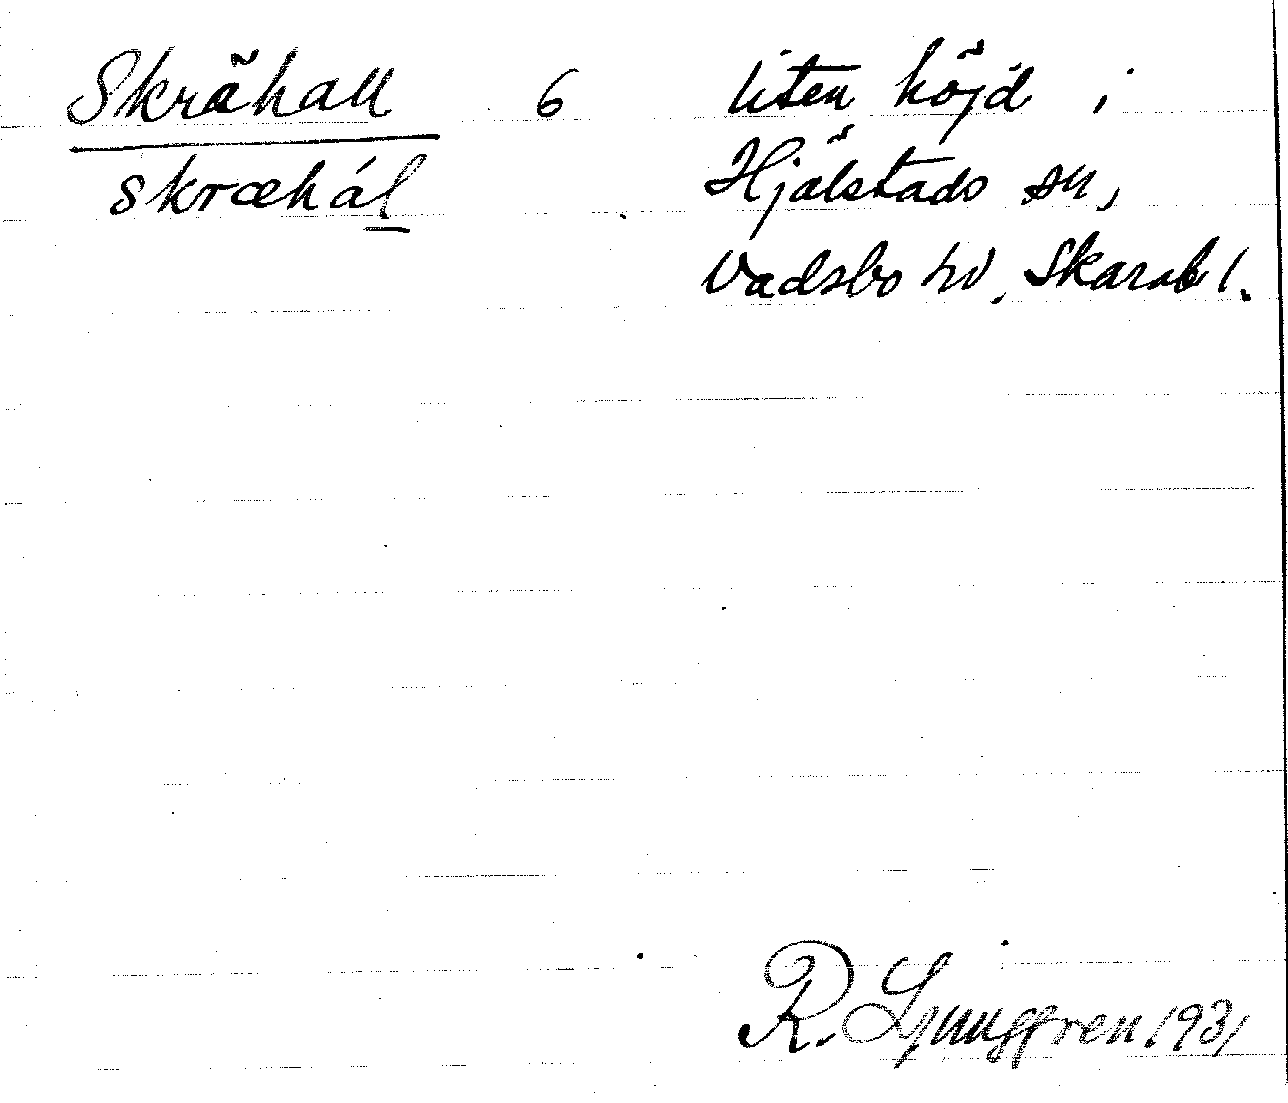 Skrähall 6 liten höjd i
skræhál Hjälstads sn,
Vadsbo hd, Skarab l.
R. Ljunggren 1931